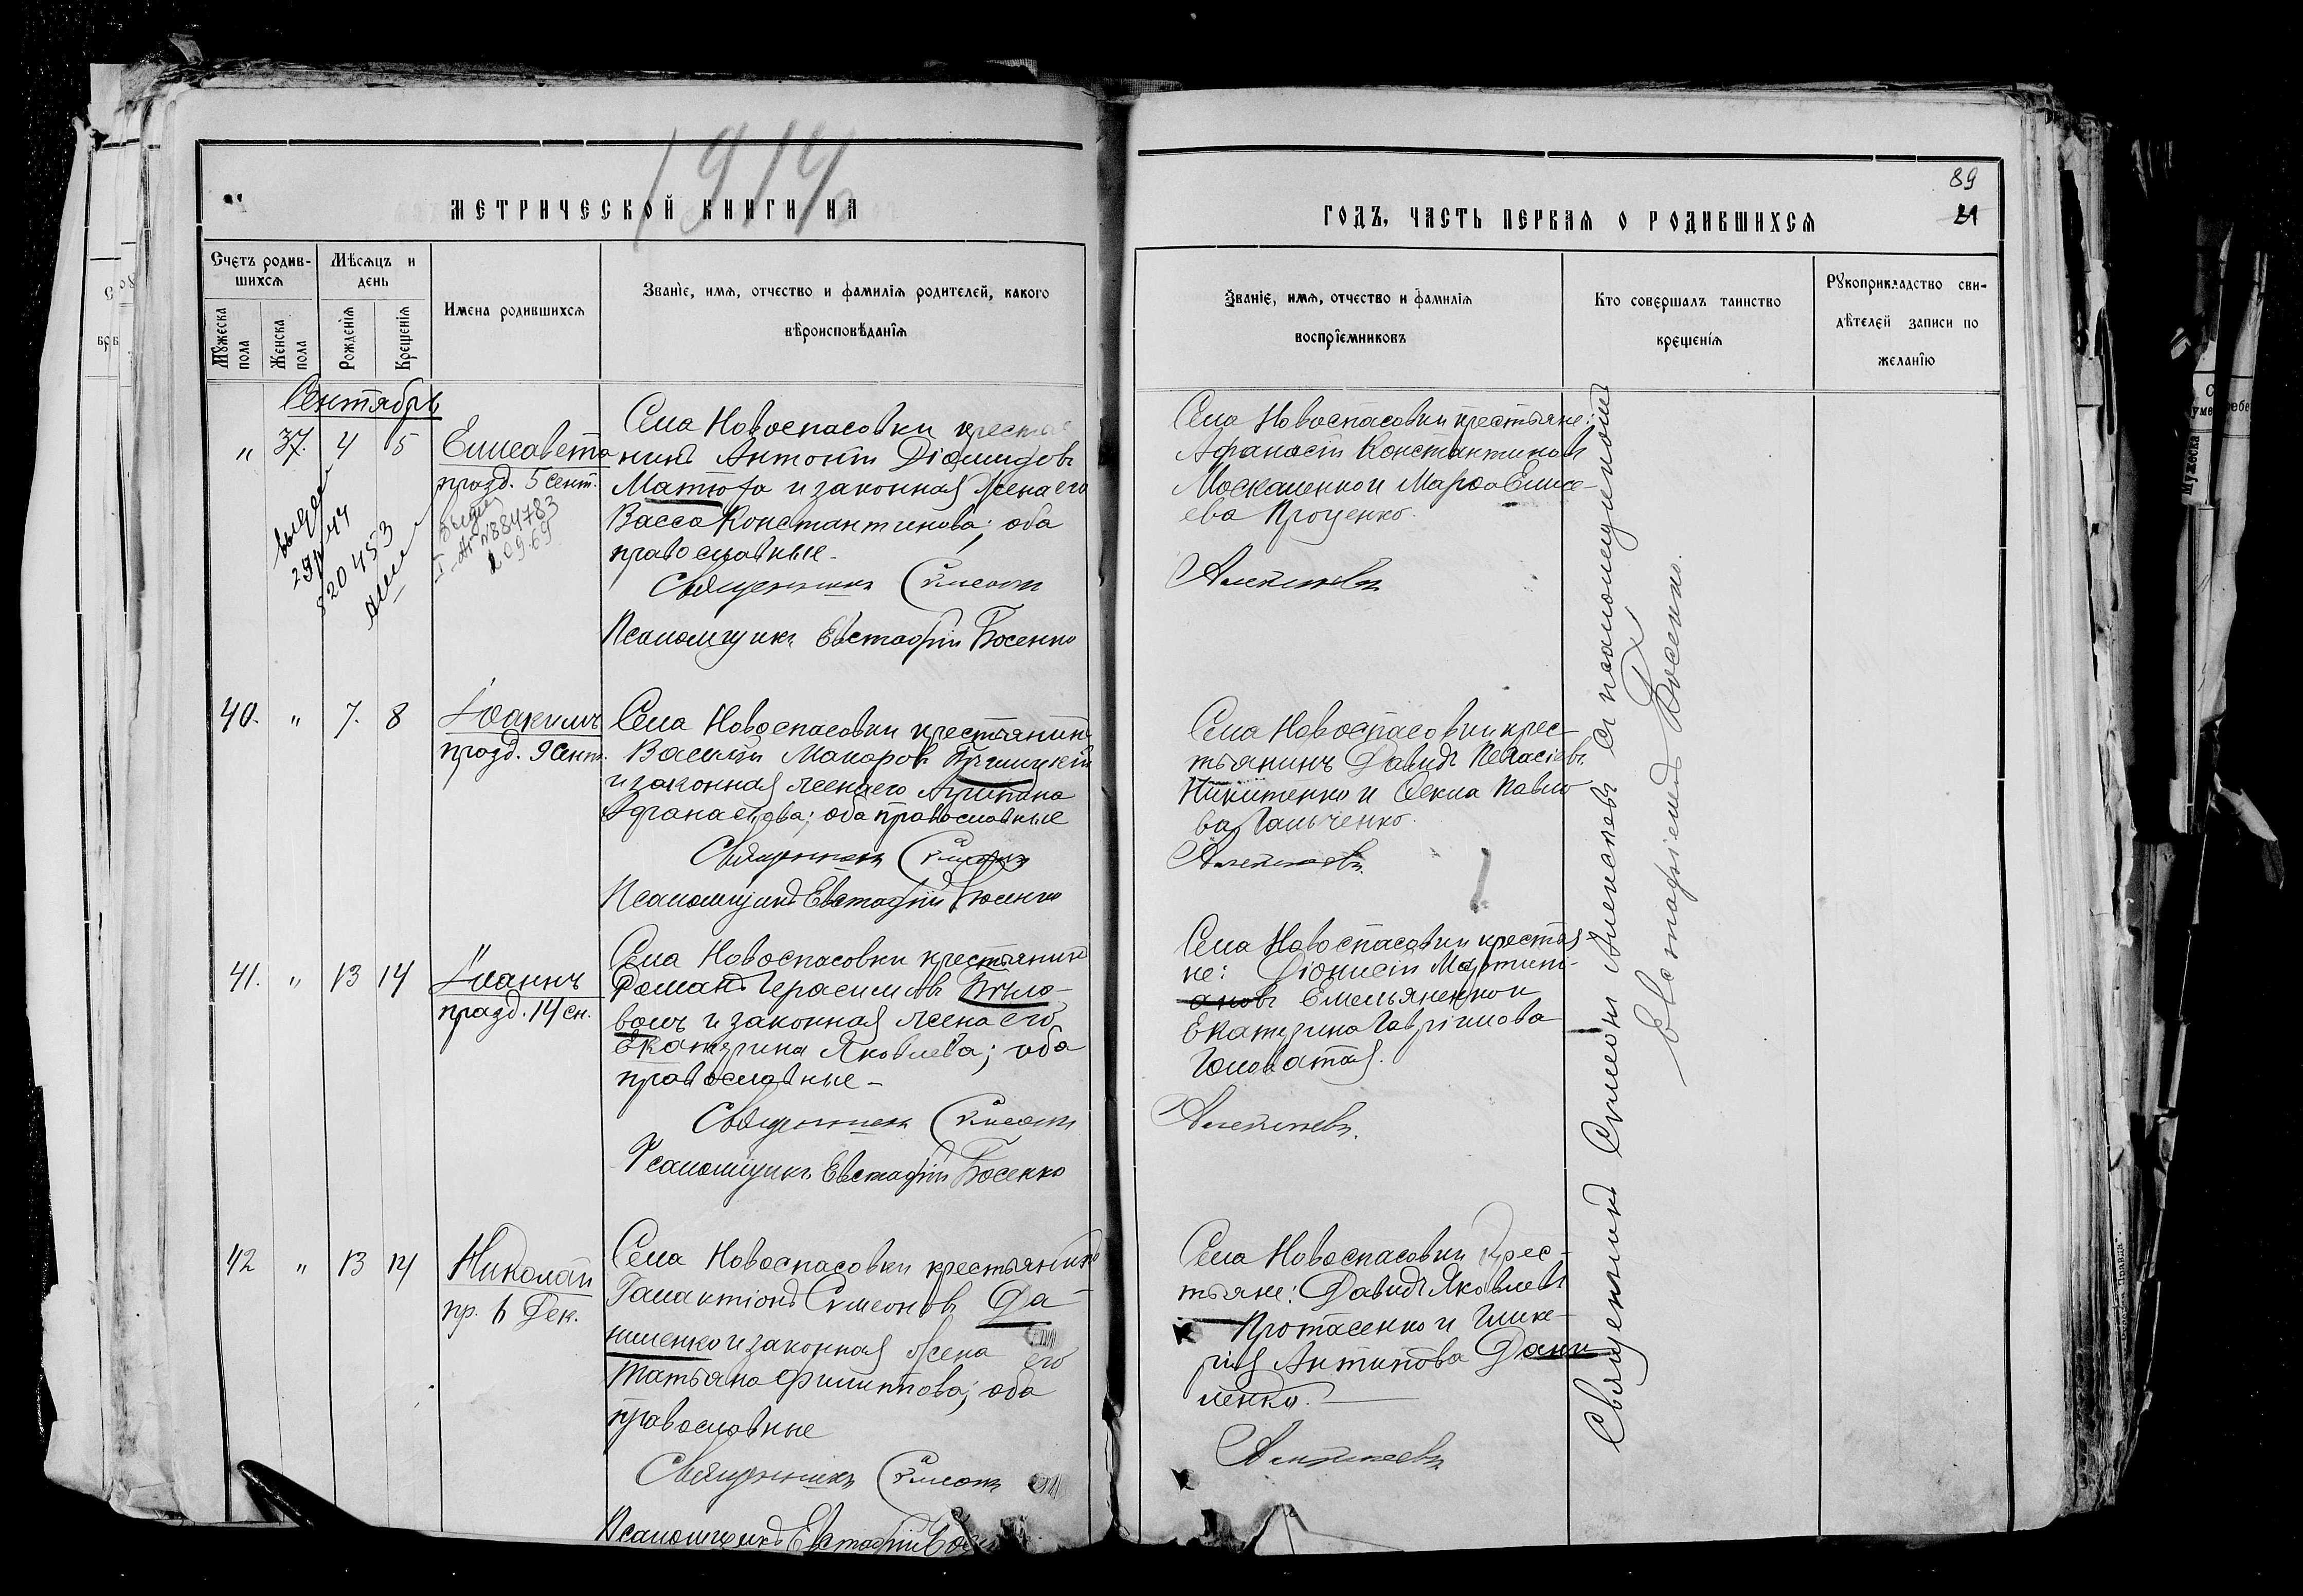 1914
МЕТРИЧЕСКОЙ КНИГИ НА
Счетъ родив-
шихся
Мужеска
пола
Женска
пола
Мѣсяцъ и
день
Рожденія
Крещенія
Имена родившихся
Званіе, имя, отчество и фамилія родителей, какого
вѣроисповѣданія
Сентябрь
" 37. 4 5
Елисавета
празд. 5 сент.
29/IV 44
820453
N 884783
Села Новоспасовки крестья
нинъ Антоній Діомидовъ
Матюха и законная жена его
Васса Константинова; оба
православные
Священникъ Симеонъ
Псаломщикъ Евстафій Босенко
40. " 7. 8
Іоакимъ
празд. 9 сент.
Села Новоспасовки крестьянинъ
Василій Макаровъ
и законная жена его Агрипина
Афанасіева; оба православные
Священникъ Симеонъ
Псаломщикъ Евстафій Босенко
41. " 13 14
Іоаннъ
празд. 14 сн.
Села Новоспасовки крестьянинъ
Романъ Герасимовъ Бѣло-
волъ и законная жена его
Екатерина Яковлева; оба
православные
Священникъ Симеонъ
Псаломщикъ Евстафій Босенко
42 " 13 14
Николай
пр. 6 Дек.
Села Новоспасовки крестьянинъ
Галактіонъ Симеоновъ Да-
ниленко и законная жена его
Татьяна Филиппова; оба
православные
Священникъ Симеонъ
Псаломщикъ Евстафій
89
21
ГОДЪ, ЧАСТЬ ПЕРВАЯ О РОДИВШИХСЯ
Званіе, имя, отчество и фамилія
воспріемниковъ
Кто совершалъ таинство
крещенія
Рукоприкладство сви-
дѣтелей записи по
желанію
Села Новоспасовки крестьяне:
Афанасій Константиновъ
Москаленко и Марфа Елисе-
ева Проценко.
Алексѣевъ
Села Новоспасовки крес-
тьянинъ Давидъ
Никитенко и Фекла Павло
ва Гальченко.
Алексѣевъ
Села Новоспасовки крестья
не: Діонисій Мартини-
ановъ Емельяненко и
Екатерина Гавріилова
Головатая.
Алексѣевъ
Села Новоспасовки крес-
тьяне: Давидъ Яковлевъ
Протасенко и Глике-
рія Антипова Дани
ленко.
Алексѣевъ
Священникъ Симеонъ Алексѣевъ съ псаломщикомъ
Евстафіемъ Босенко.